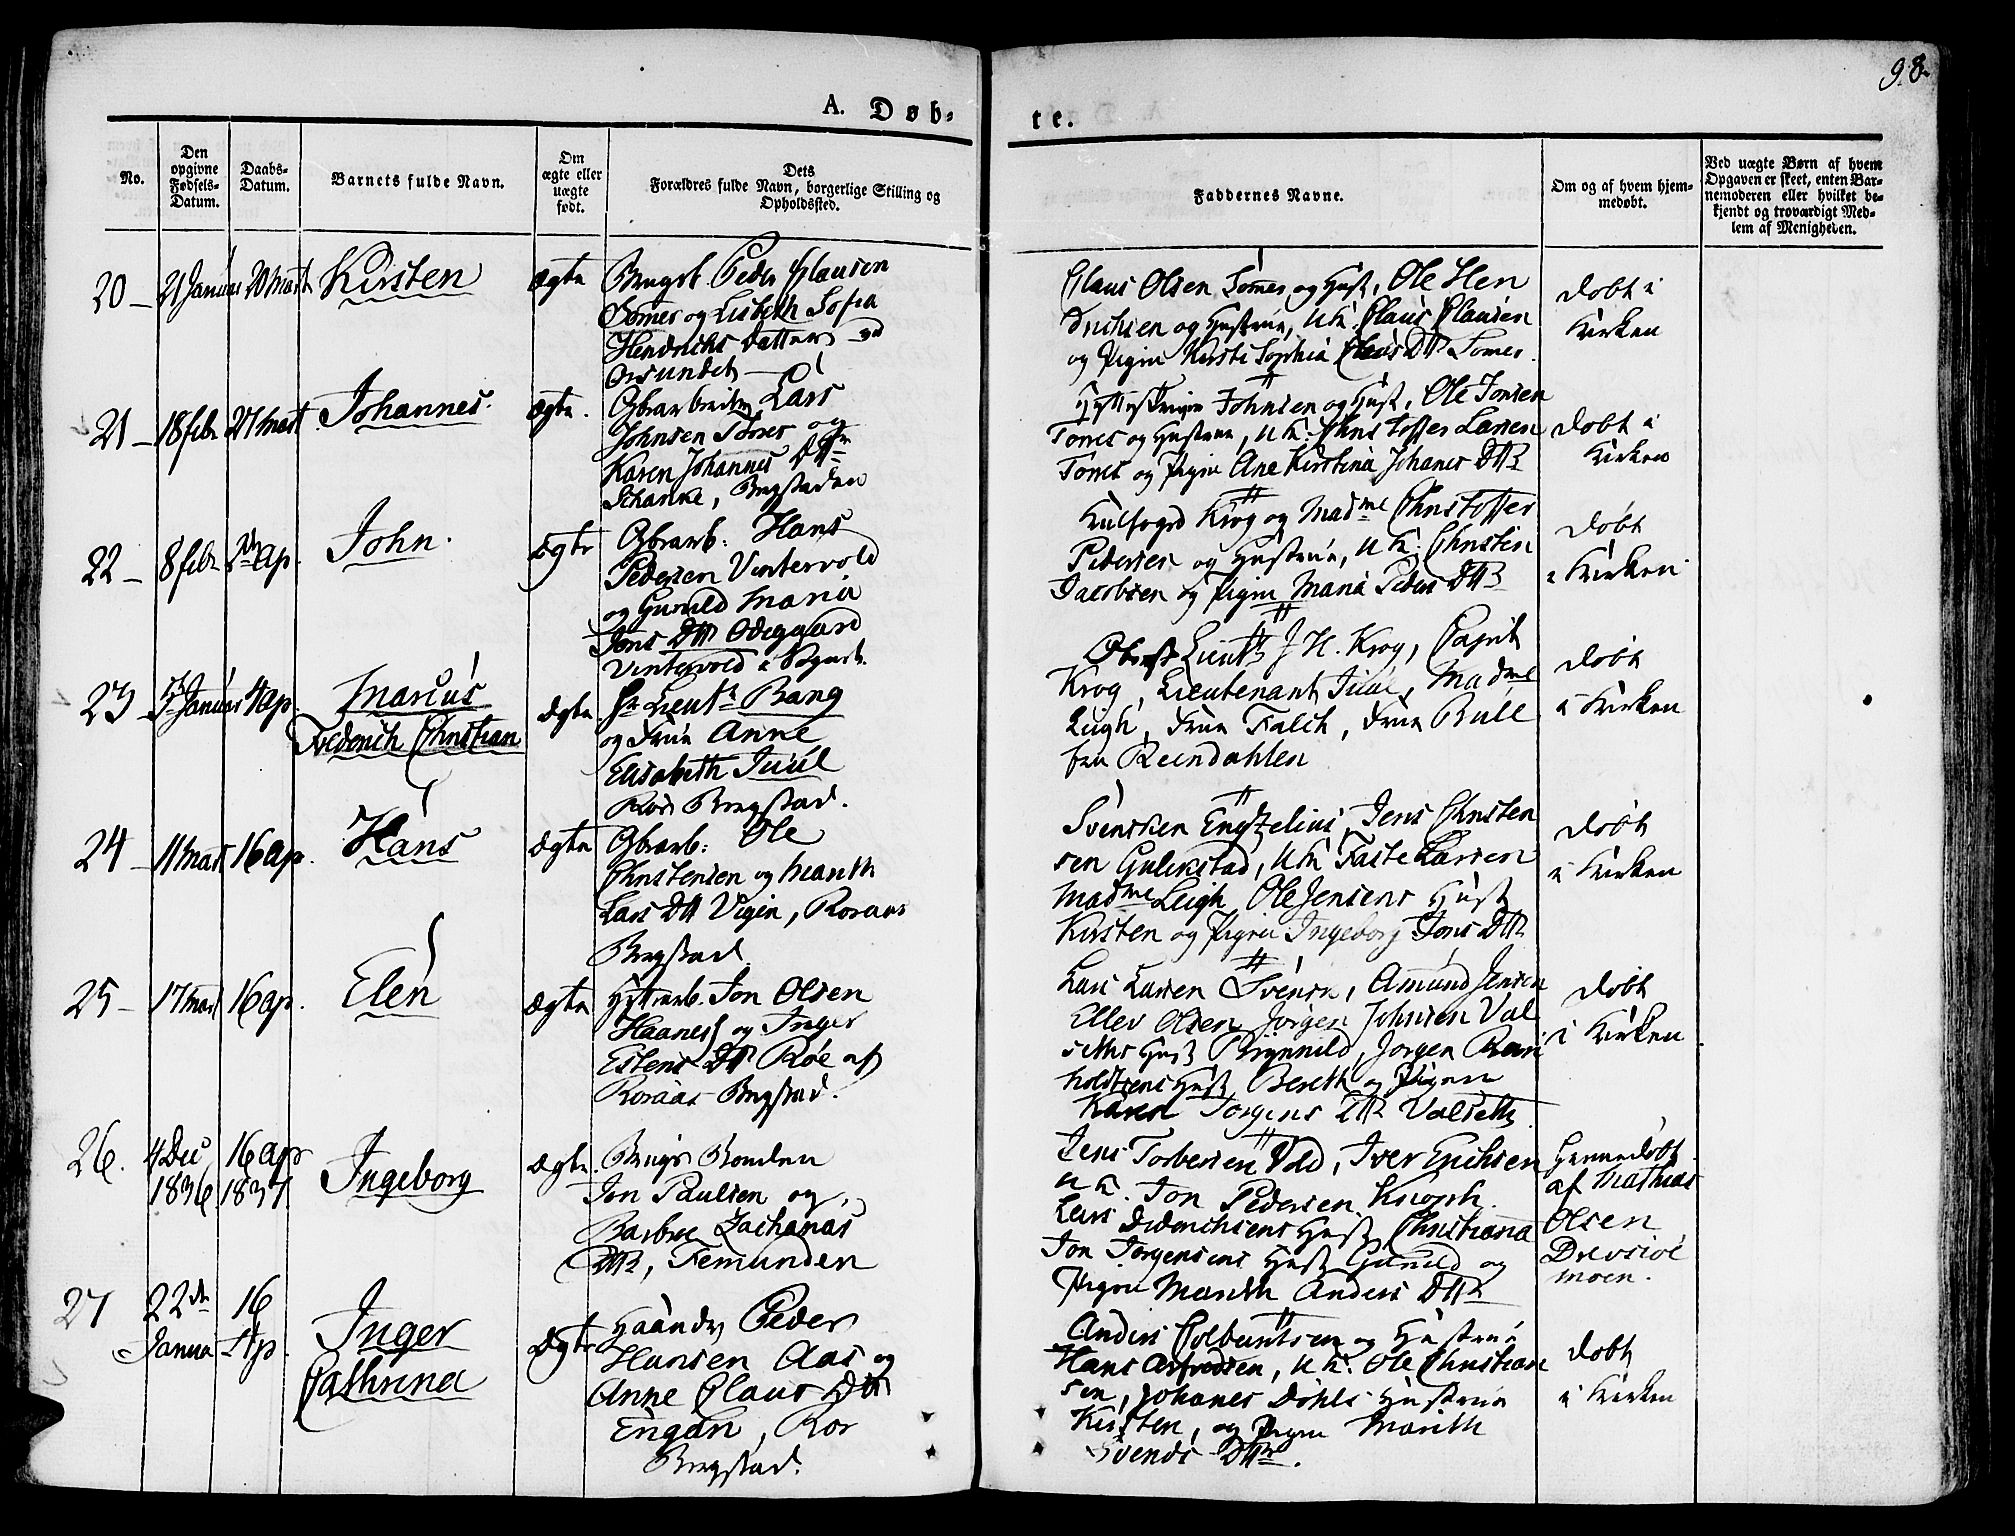 98.
A. Døb-
te.
No.
Den opgivne Fødsels-Datum.
Daabs-Datum.
Barnets fulde Navn.
Om ægte eller uægte født.
Dets
Forældres fulde Navn, borgerlige Stilling og
Opholdssted.
Faddernes Navne.
Om og af hvem hjem-
medøbt.
Ved uægte Børn af hvem
Opgaven er skeet, enten Bar-
nemoderen eller hvilket be-
kjendt og troværdigt Med-
lem af Menigheden.
20 - 21 Januar 20 Mart Kirsten Ægte Peder Clausen
Sømes og Lisbeth Sofia
Hendrichs Datter
Orsundet
Claus Olsen Sømes og Hust, Ole Hen
drichsen og Hustrue, U K. Claus Clausen
og Pigen Kirsti Sophia Claus DtR Sømes.
døbt i
Kirken
21 - 18 febr 27 Mart Johannes. Ægte. Lars
Johnsen Torres og
Karen Johannes Dtr
Schanke, Bergstaden
Johnsen og Hust, Ole Jonsen
Torres og Hustrue, U K. Christoffer Larsen
Torres og Pigen Ane Kirstina Johanes DtR
døbt i
Kirken
22 - 8 febr ap. John. Ægte Hans
Pedersen Vintervold
og Gunild Maria
Jons DtR Odegaard
Vintervold
Krog og Madme Christoffer
Pedersen og Hustrue, U K. Christen
Jacobsen og Pigen Maria Peders DtR
døbt
i Kirken
23 5 Januar 4 ap. Marius
Frederich Christian
ægte Hr Lieutn Bang
og Frue Anne
Elisabeth Juul
Rør Bergstad.
Oberst Lieutn J H. Krog, Capit
Krog, Lieutenant Juul, Madme
Leigh, Frue Falch, Frue Bull
Reendahlen
døbt
i Kirken
24 - 11 Mart 16 ap. Hans Ægte Ole
Christensen og Marith
Lars Dtt Vigen, Roraas
Bergstad.
Svensken Engzelius, Jens Christen
sen Gulikstad, U K Faste Larsen
Madme Leigh, Ole Jensens Hust
Kirsten og Pigen Ingeborg Jons DtR.
døbt
i Kirken
25 - 17 Mart 16 ap. Elen Ægte Jon Olsen
Haanes og Inger
Estens DtR Røe af
Roraas Bergstad.
Lars Larsen Svensk, Amund Jensen
Ellev Olsen Jørgen Johnsen Val
seths Hust Brynnild, Jorgen Rein
holdtsens Hust Bereth og Pigen
Karen Jorgens DtR Valseth
døbt
i Kirken
26. 4 Dec
1836 16 ap
1837. Ingeborg Ægte. Brugs Bonden
Jon Paulsen og
Barbroe Zacharias
DtR, Femunden
Jens Torbersen Vold, Iver Erichsen
U K. Jon Pedersen Knoph.
Lars Diderichsens Hust Christiana
Jon Jorgensens Hust Gunild og
Pigen Marith Anders DtR
Hjemmedøbt
af Mathias
Olsen
Drevsiøe
moen.
27 22de
Janua 16
Ap. Inger
Cathrina
Ægte Peder
Hansen Aas og
Anne Claus Dtr
Engan, Ror
Bergstad.
Anders Colbentsen og Hustrue
Hans Arfredsen, U K. Ole Christian
sen, Johanes Døhls Hustrue
Kirsten, og Pigen Marith
Svends DtR.
døbt
i Kirken